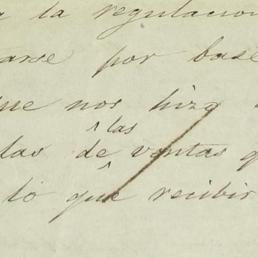 a la regulacion
arse por base
que nos hizo
las
las de ventas q
lo que recibir